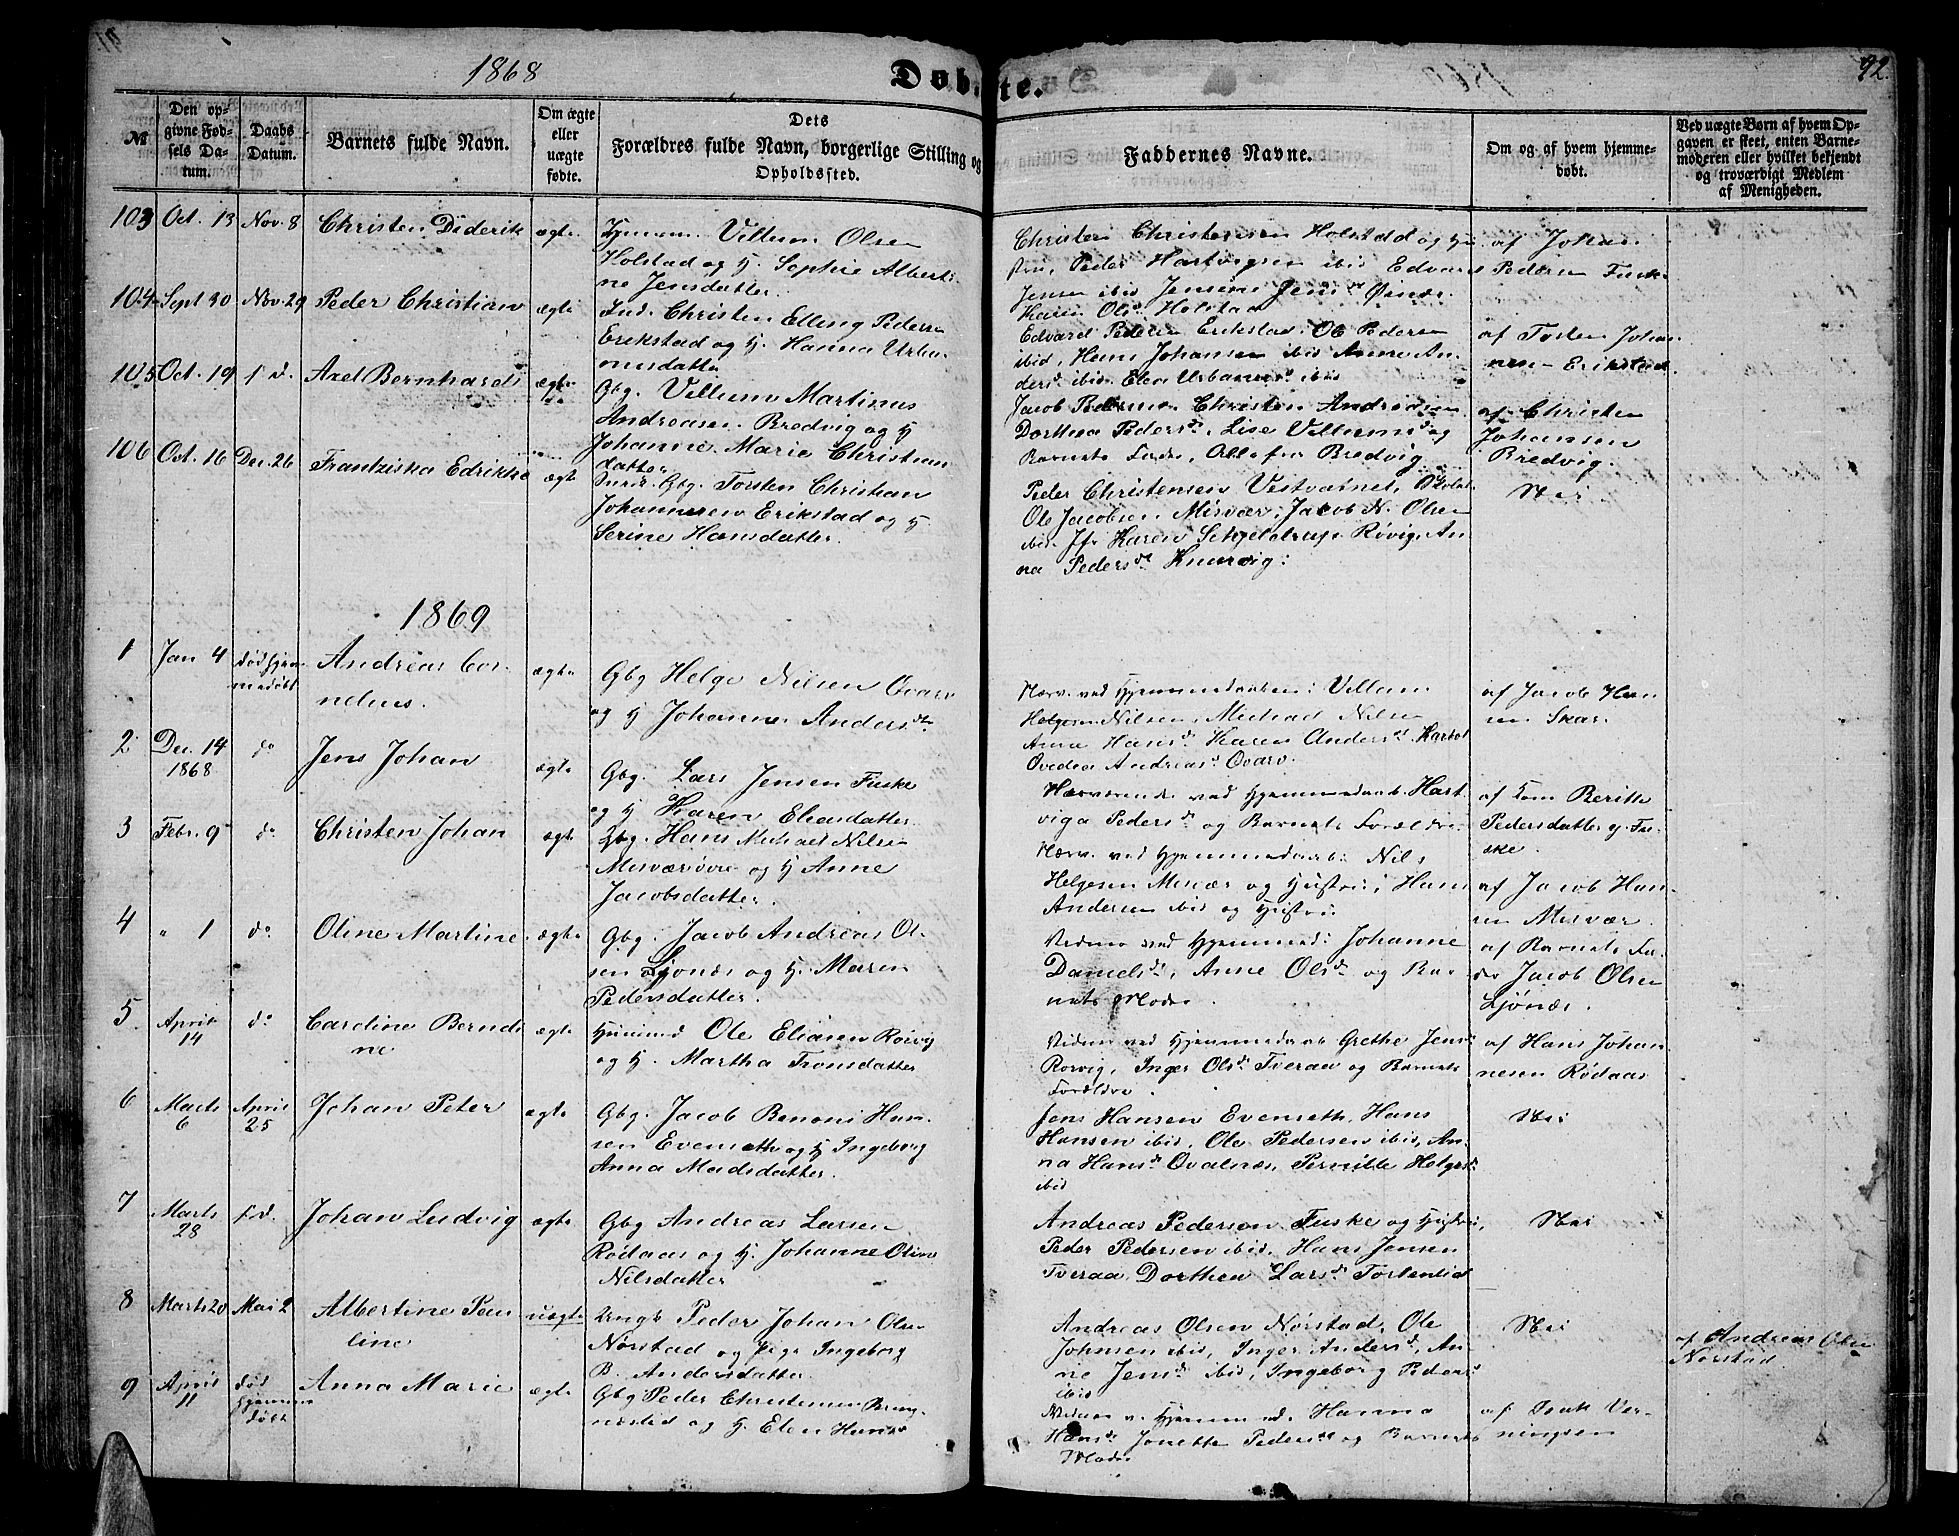 1868
Døbte.
92.
№
Den op-
givne Fød-
sels Da-
tum.
Daabs
Datum.
Barnets fulde Navn.
Om ægte
eller
uægte
fødte.
Dets
Forældres fulde Navn, borgerlige Stilling og
Opholdssted.
Faddernes Navne.
Om og af hvem hjemme-
døbt.
Ved uægte Børn af hvem Op-
gaven er skeet, enten Barne-
moderen eller hvilket bekjendt
og troværdigt Medlem
af Menigheden.
103 Oct. 13 Nov. 8 Christen Diderik ægte
Villum Olsen
Holstad og H. Sophie Alberti-
ne Jensdatter.
Christen Christensen Holstad og Hu-
stru, Peder Hartvigsen ibid Edvard
Jensen ibid Jensine Jens d. Øines
Karen Ols d. Holstad
af Johan
Pedersen Fuske
104 Sept 30 Nov. 29 Peder Christian ægte
Ind. Christen Elling Peders
Erikstad og H. Hanna Urba-
nusdatter
Edvard Peders Erikstad, Ole Pedersen
ibid, Hans Johansen ibid Anne An-
ders d. ibid. Elen Urbanus d. ibid
af Tosten Johan-
nesen Erikstad
105 Oct. 19 s. d. Axel Bernhard ægte
Gbg. Villum Martinus
Andreasen Bredvig og H
Johanne Marie Christian
datter
Jacob Pedersen Christen Andreasen
Dorthea Peders d. Lise Villums d. og
Barnets Fader, Alle fra Bredvig
af Christen
Johansen
Bredvig.
106 Oct. 16 Dec. 26 Frantziska Edrikke ægte
Gbg. Torsten Christian
Johannesen Erikstad og H.
Serine Hansdatter.
Peder Christensen Vestvatnet,
Ole Jacobsen Misvær, Jacob N. Olsen
ibid. Jfr Karen Schjeldrup Røvig, An-
na Peders d. Knarvig:
Nei
1869
1 Jan 4 død hjem-
medøbt Andreas Cor-
nelius. ægte
Gbg Helge Nilsen Qvarv
og H Johanne Anders dtr
Nærv. ved Hjemmedaaben: Villum
Helgesen Nilsen, Michael Nilsen
Anna Hans d. Karen Anders d.
Ovedea Andreas d. Qvarv.
af Jacob Han
sen Skar.
2 Dec. 14
1868 do Jens Johan ægte
Gbg. Lars Jensen Fuske
og H Karen Eliasdatter
Nærværende ved Hjemmedaab. Hart-
viga Peders d. og Barnets Forældre.
af Kone Berith
Pedersdatter Fu-
ske.
3 Febr. 9 do Christen Johan ægte
Gbg. Hans Michael Nilsen
Misværsøre og H Anne
Jacobsdatter.
Nærv. ved Hjemmedaab: Nils
Helgesen Misvær og Hustru, Hans
Andersen ibid og Hustru.
af Jacob Han-
sen Misvær
4 " 1 do Oline Martine ægte
Gbg. Jacob Andreas Ol-
sen Ljønes og H. Maren
Pedersdatter.
Vidner ved Hjemmed: Johanne
Daniels d., Anne Ols d. og Bar-
nets Moder.
af Barnets Fa-
der Jacob Olsen
Ljønes.
5. April
14 do Caroline Berndi
ne ægte
Huusmd Ole Eliasen Røsvig
og H. Martha Tronsdatter
Vidner ved Hjemmedaab Grethe Jens d.
Rørvig, Inger Ols d. Tveraa og Barnets
Forældre.
af Hans Johan
nesen Rødaas
6 Marts
6 April
25 Johan Peter ægte
Gbg. Jacob Benoni Han-
sen Evenseth og H Ingeborg
Anna Madsdatter.
Jens Hansen Evenseth, Hans
Hansen ibid, Ole Pedersen ibid, An-
na Hans d. Qvalnes, Pernille Helges d.
ibid
Nei
7 Marts
28 s. d. Johan Ludvig ægte
Gbg Andreas Larsen
Rødaas og H. Johanne Oline
Nilsdatter
Andreas Pedersen Fuske og Hustru,
Peder Pedersen ibid. Hans Jensen
Tveraa, Dorthea Lars d. Tortenlid
Nei
8 Marts 20 Mai 2 Albertine Pau-
line uægte
Ungk Peder Johan Olsen
Nørstad og Pige Ingeborg
B. Andersdatter.
Andreas Olsen Nørstad, Ole
Johnsen ibid, Inger Anders d., An-
ne Jens d. ibid, Ingeborg Peders d.
ibid
Nei
af Andreas Olsen
Nørstad
9 April
11 død
hjemme
døbt Anna Marie ægte
Gbg Peder Christensen Bring-
neslid og H. Elen Hans d.
Vidner v. Hjemmed. Hanna
Hans d. Jonetta Peders d. og Barnets
Moder
ningsen